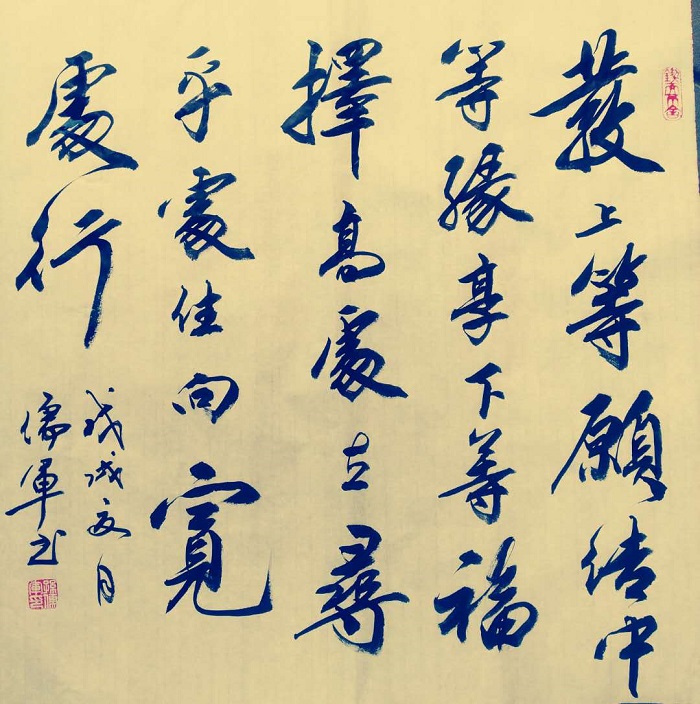 發上等願結中
等緣享下等福
擇高處立尋
平處住向寬
處行
戊戌夏月
儒軍书